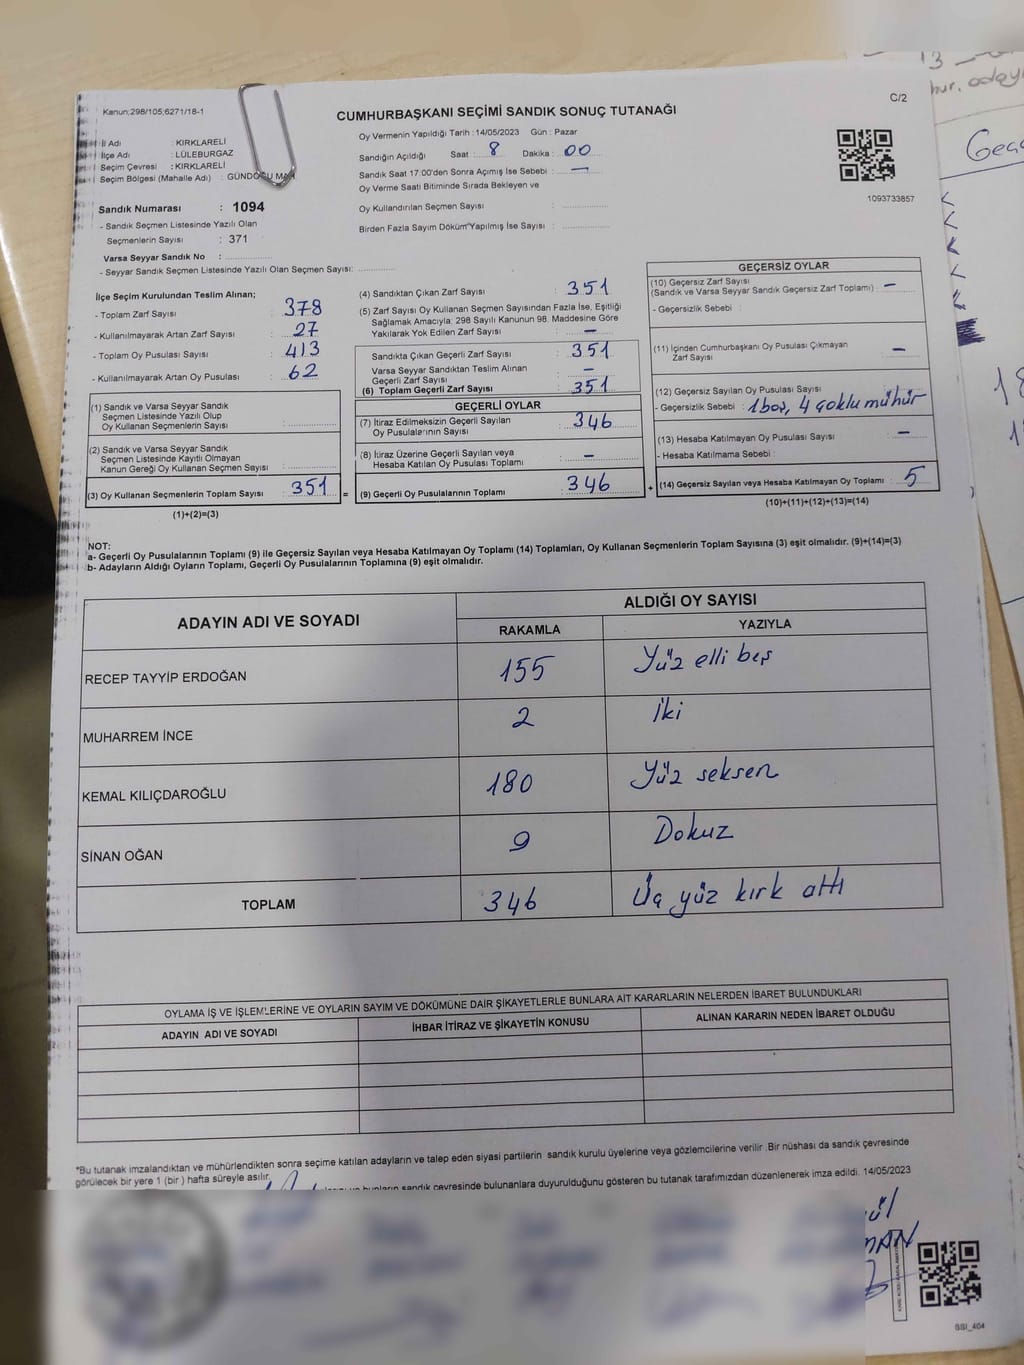 Kanun:298/105;6271/18-1
C/2
CUMHURBAŞKANI SEÇİMİ SANDIK SONUÇ TUTANAĞI
İl Adı : KIRKLARELİ
İlçe Adı : LÜLEBURGAZ
Seçim Çevresi : KIRKLARELİ
Seçim Bölgesi (Mahalle Adı) : GÜNDOĞU MAH
Sandık Numarası : 1094
- Sandık Seçmen Listesinde Yazılı Olan
Seçmenlerin Sayısı : 371
Varsa Seyyar Sandık No :
- Seyyar Sandık Seçmen Listesinde Yazılı Olan Seçmen Sayısı:
Oy Vermenin Yapıldığı Tarih : 14/05/2023 Gün : Pazar
Sandığın Açıldığı Saat : 8 Dakika : 00
Sandık Saat 17:00'den Sonra Açımış İse Sebebi : —
Oy Verme Saati Bitiminde Sırada Bekleyen ve
Oy Kullandırılan Seçmen Sayısı :
Birden Fazla Sayım Döküm Yapılmış İse Sayısı :
1093733857
İlçe Seçim Kurulundan Teslim Alınan;
- Toplam Zarf Sayısı : 378
- Kullanılmayarak Artan Zarf Sayısı : 27
- Toplam Oy Pusulası Sayısı : 413
- Kullanılmayarak Artan Oy Pusulası : 62
(1) Sandık ve Varsa Seyyar Sandık
Seçmen Listesinde Yazılı Olup
Oy Kullanan Seçmenlerin Sayısı :
(2) Sandık ve Varsa Seyyar Sandık
Seçmen Listesinde Kayıtlı Olmayan
Kanun Gereği Oy Kullanan Seçmen Sayısı :
(3) Oy Kullanan Seçmenlerin Toplam Sayısı : 351
(1)+(2)=(3)
=
(4) Sandıktan Çıkan Zarf Sayısı : 351
(5) Zarf Sayısı Oy Kullanan Seçmen Sayısından Fazla İse, Eşitliği
Sağlamak Amacıyla; 298 Sayılı Kanunun 98. Maddesine Göre
Yakılarak Yok Edilen Zarf Sayısı : —
Sandıkta Çıkan Geçerli Zarf Sayısı : 351
Varsa Seyyar Sandıktan Teslim Alınan
Geçerli Zarf Sayısı : —
(6) Toplam Geçerli Zarf Sayısı : 351
GEÇERLİ OYLAR
(7) İtiraz Edilmeksizin Geçerli Sayılan
Oy Pusulalarının Sayısı : 346
(8) İtiraz Üzerine Geçerli Sayılan veya
Hesaba Katılan Oy Pusulası Toplamı : —
(9) Geçerli Oy Pusulalarının Toplamı : 346
+
GEÇERSİZ OYLAR
(10) Geçersiz Zarf Sayısı
(Sandık ve Varsa Seyyar Sandık Geçersiz Zarf Toplamı) : —
- Geçersizlik Sebebi :
(11) İçinden Cumhurbaşkanı Oy Pusulası Çıkmayan
Zarf Sayısı : —
(12) Geçersiz Sayılan Oy Pusulası Sayısı
- Geçersizlik Sebebi : 1 boş, 4 çoklu mühür
(13) Hesaba Katılmayan Oy Pusulası Sayısı : —
- Hesaba Katılmama Sebebi :
(14) Geçersiz Sayılan veya Hesaba Katılmayan Oy Toplamı : 5
(10)+(11)+(12)+(13)=(14)
NOT:
a- Geçerli Oy Pusulalarının Toplamı (9) ile Geçersiz Sayılan veya Hesaba Katılmayan Oy Toplamı (14) Toplamları, Oy Kullanan Seçmenlerin Toplam Sayısına (3) eşit olmalıdır. (9)+(14)=(3)
b- Adayların Aldığı Oyların Toplamı, Geçerli Oy Pusulalarının Toplamına (9) eşit olmalıdır.
ADAYIN ADI VE SOYADI ALDIĞI OY SAYISI
RAKAMLA YAZIYLA
RECEP TAYYİP ERDOĞAN 155 Yüz elli beş
MUHARREM İNCE 2 İki
KEMAL KILIÇDAROĞLU 180 Yüz seksen
SİNAN OĞAN 9 Dokuz
TOPLAM 346 Üç yüz kırk altı
OYLAMA İŞ VE İŞLEMLERİNE VE OYLARIN SAYIM VE DÖKÜMÜNE DAİR ŞİKAYETLERLE BUNLARA AİT KARARLARIN NELERDEN İBARET BULUNDUKLARI
ADAYIN ADI VE SOYADI İHBAR İTİRAZ VE ŞİKAYETİN KONUSU ALINAN KARARIN NEDEN İBARET OLDUĞU
*Bu tutanak imzalandıktan ve mühürlendikten sonra seçime katılan adayların ve talep eden siyasi partilerin sandık kurulu üyelerine veya gözlemcilerine verilir. Bir nüshası da sandık çevresinde
görülecek bir yere 1 (bir) hafta süreyle asılır.
bunların sandık çevresinde bulunanlara duyurulduğunu gösteren bu tutanak tarafımızdan düzenlenerek imza edildi. 14/05/2023
SSI_404